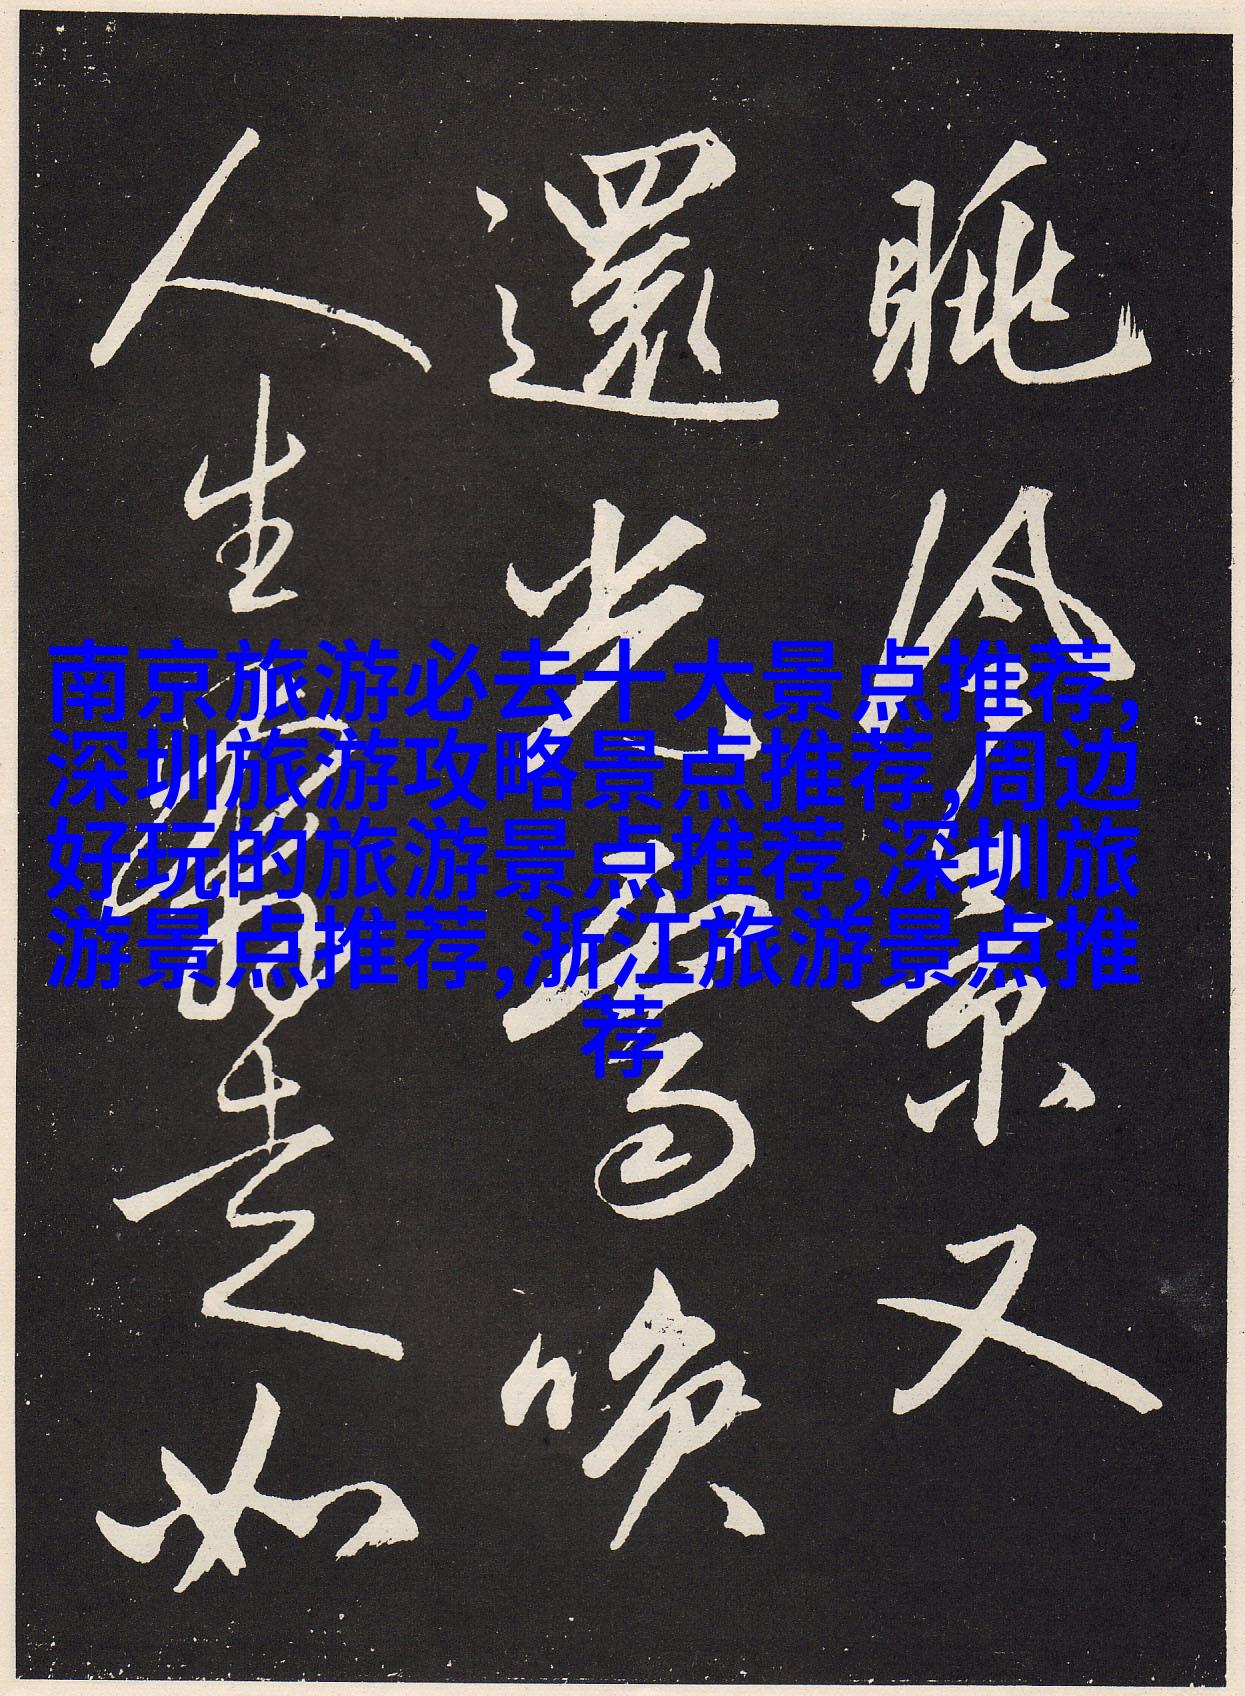 南京旅游必去十大景点推荐,
深圳旅游攻略景点推荐,周边
好玩的旅游景点推荐,深圳旅
游景点推荐,浙江旅游景点推
荐
眺景又
還光喚
人生如